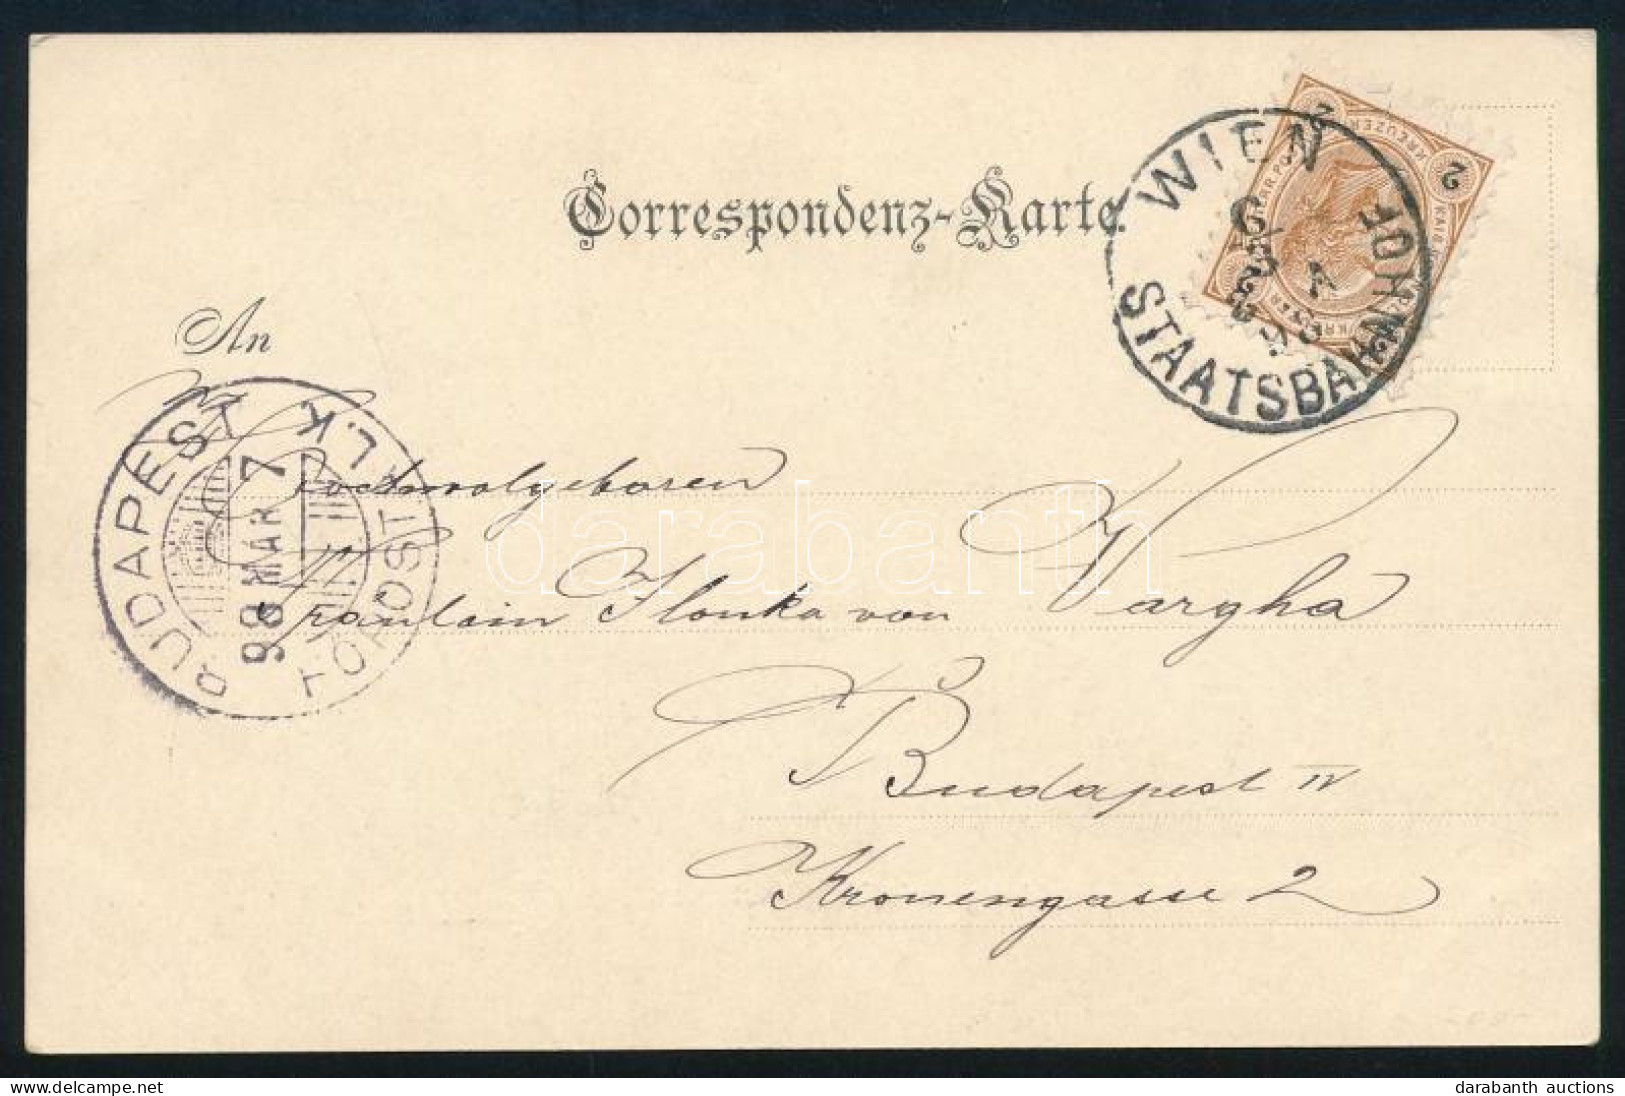 Correspondenz-Karte.
WIEN
STAATSBAHNHOF
2
2
KREUZER
An
BUDAPEST
98 MÁR 7
Hochwolgeboren
Fräulein Ilonka von Vargha
Budapest IV
Kronengasse 2
darabanth
darabanth auctions